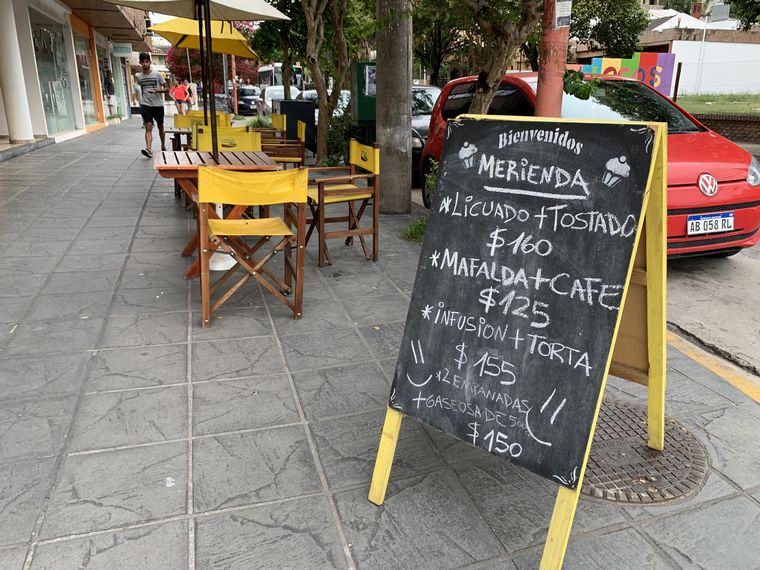 Bienvenidos
MERIENDA
*LICUADO+TOSTADO
$160
*MAFALDA+CAFE
$125
*INFUSION+TORTA
$155
*2 EMPANADAS
+GASEOSA DE 500
$150
AB 058 RL